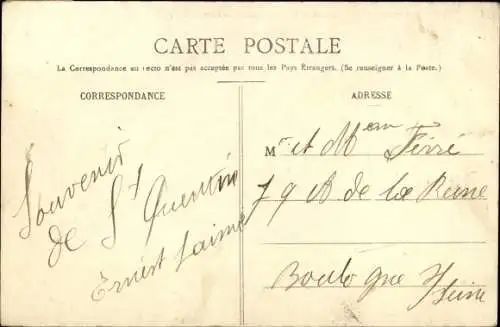 CARTE POSTALE
La Correspondance au recto n'est pas acceptée par tous les Pays Étrangers. (Se renseigner à la Poste.)
CORRESPONDANCE
ADRESSE
Souvenir
de St Quentin
Ernest
Mr et Mem Ferré
79 de la Reine
Boulogne s/ Seine